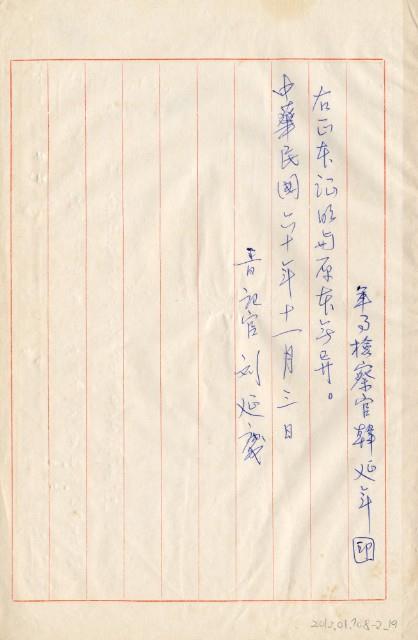 軍事檢察官韓延年 印
右正本证明與原本無異。
中華民國六十年十一月三日
書記官 刘延慶
2012.01.108-2_19